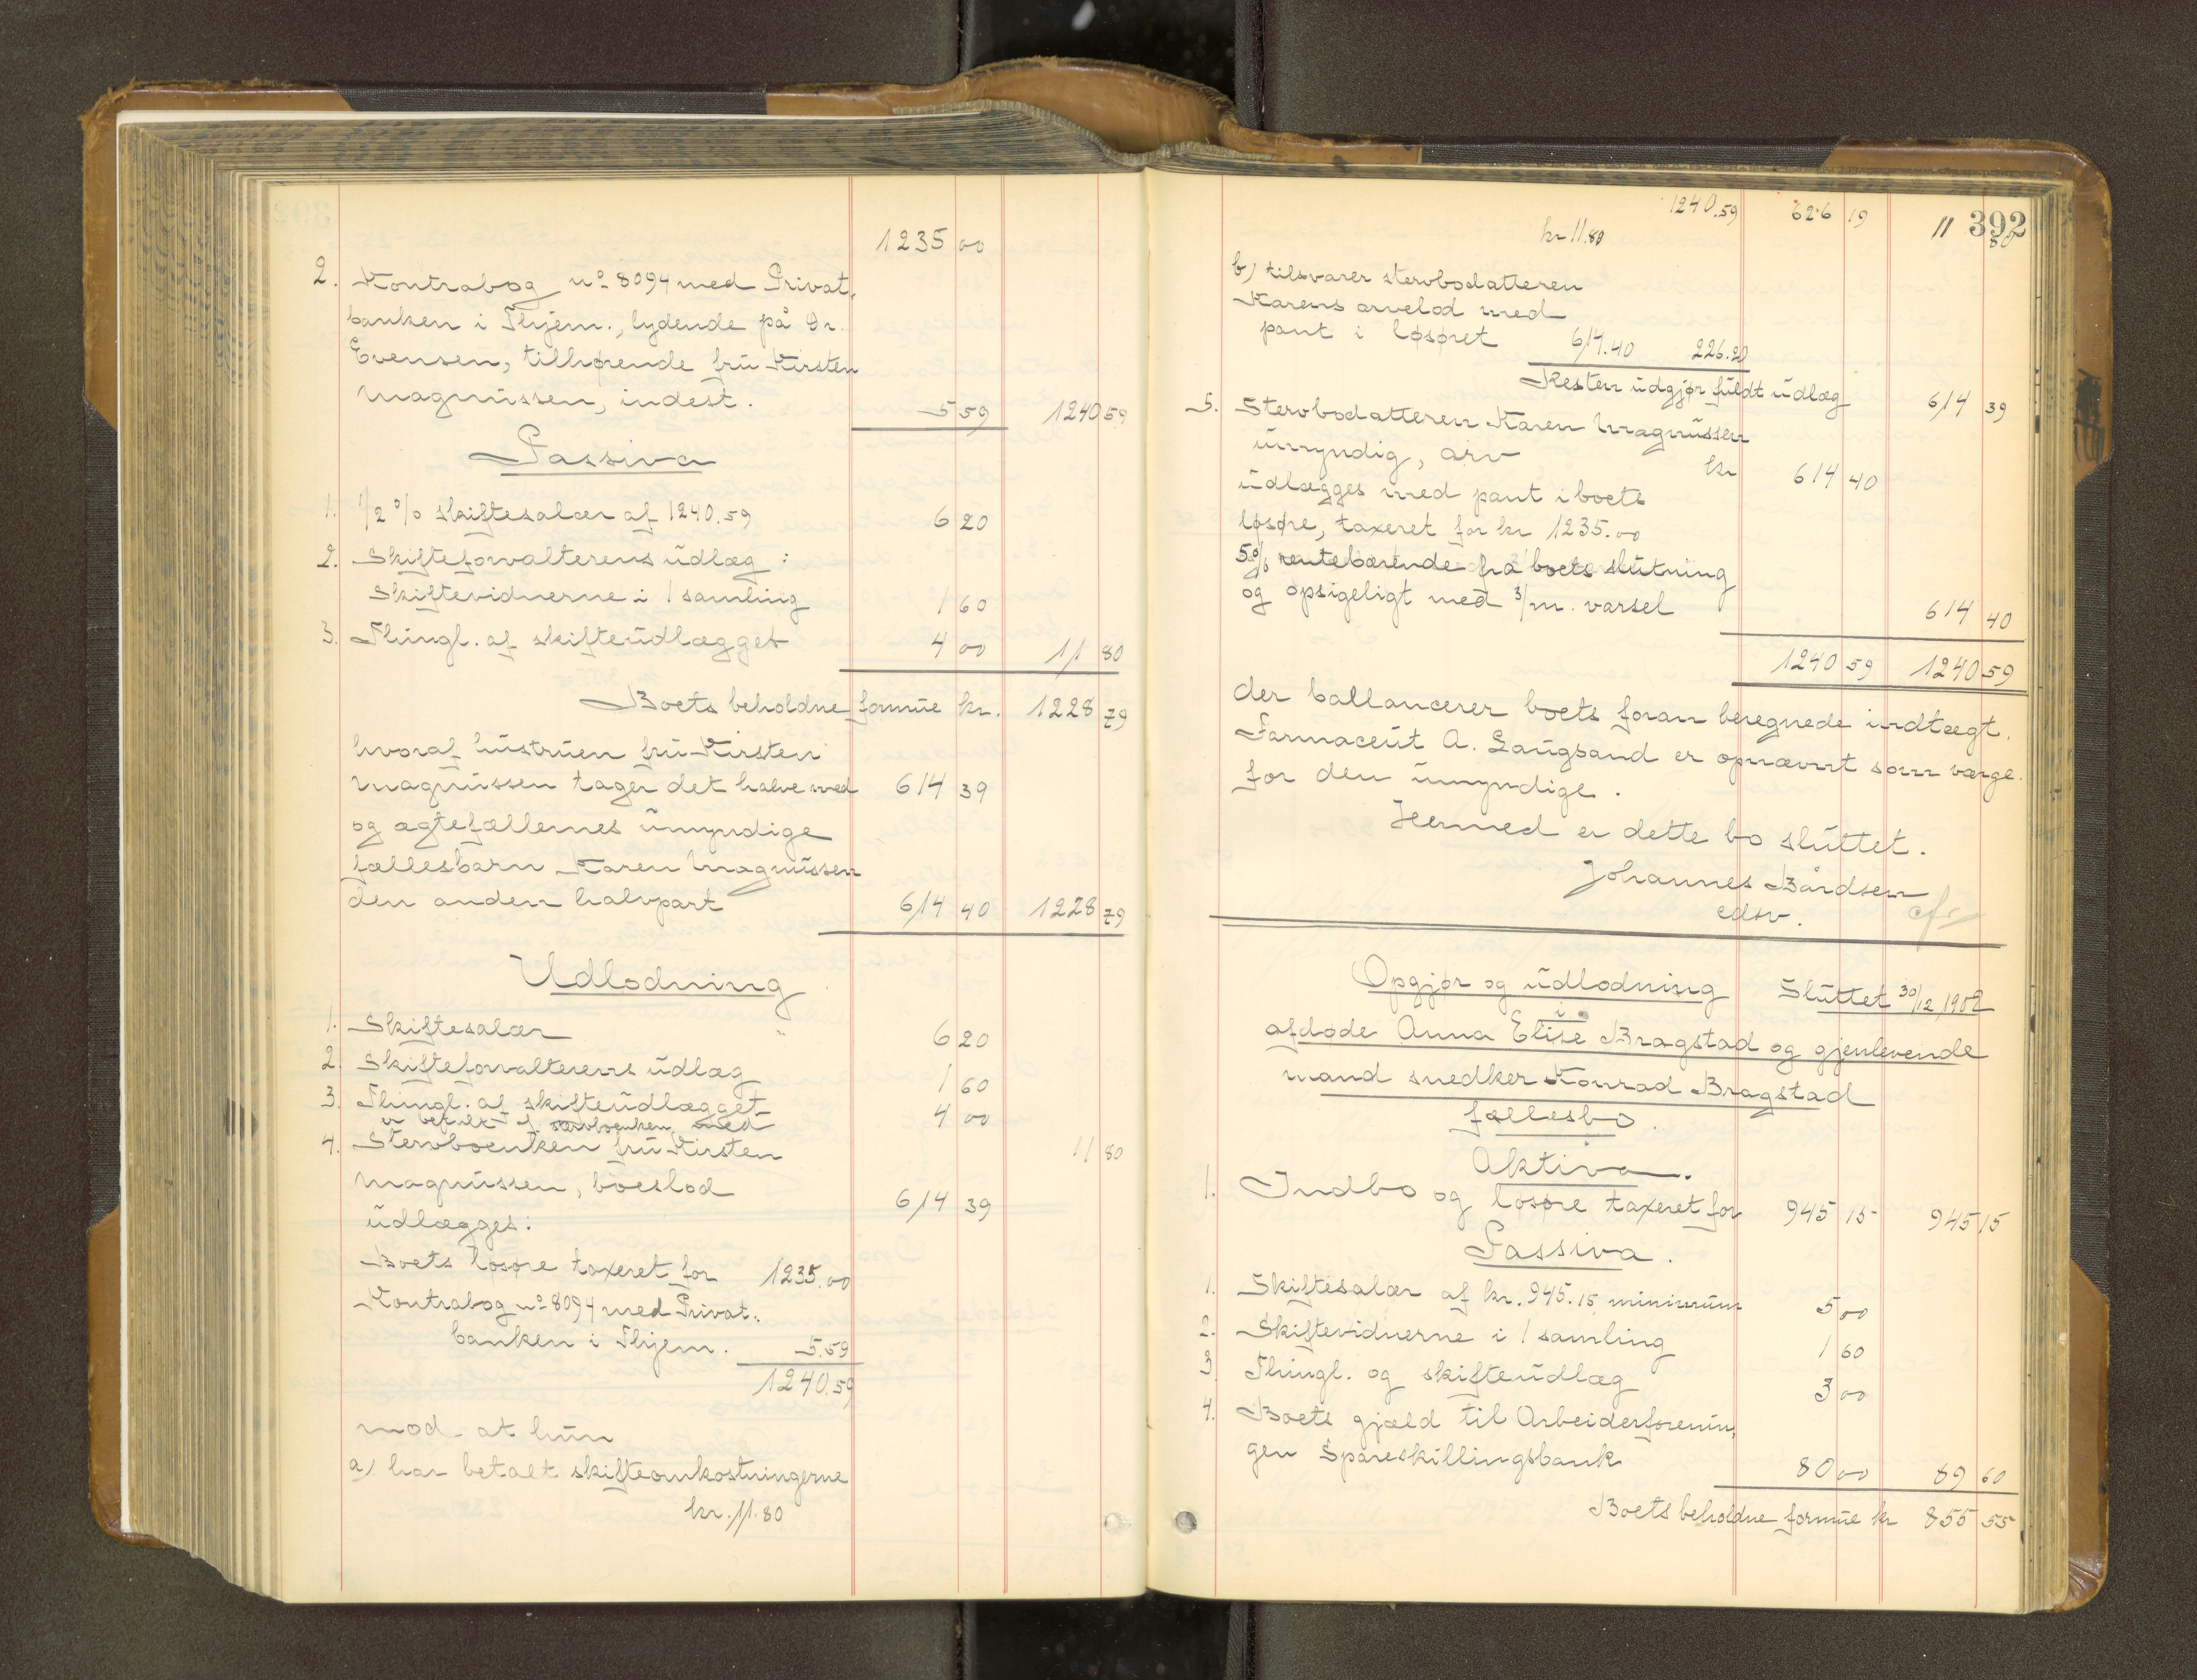 1235 00
2. Kontrabog no 8094 med Privat-
banken i Thjem., lydende på Dr.
Evensen, tilhørende fru Kirsten
Magnussen, indest. 5 59 1240 59
Passiva
1. 1/2 % skiftesalær af 1240.59 6 20
2. Skifteforvalterens udlæg:
Skiftevidnerne i 1 samling 1 60
3. Thingl. af skifteudlægget 4 00 11 80
Boets beholdne formue kr. 1228 79
hvoraf hustruen fru Kirsten
Magnussen tager det halve med 614 39
og ægtefællernes umyndige
fællesbarn Karen Magnussen
den anden halvpart 614 40 1228 79
Udlodning
1. Skiftesalær " 6 20
2. Skifteforvalterens udlæg 1 60
3. Thingl. af skifteudlægget 4 00
er betalt af stervboenken med 11 80
4. Stervboenken fru Kirsten
Magnussen, boeslod 614 39
udlægges:
Boets løsøre taxeret for 1235.00
Kontrabog no 8094 med Privat-
banken i Thjem. 5.59
1240.59
mod at hun
a) har betalt skifteomkostningerne
kr. 11.80
392
1240.59 626 19 11 80
kr 11.80
b) tilsvarer stervbodatteren
Karens arvelod med
pant i løsøret 614.40 226.20
Resten udgjør fuldt udlæg 614 39
5. Stervbodatteren Karen Magnussen
umyndig, arv kr 614 40
udlægges med pant i boets
løsøre, taxeret for kr 1235.00
5 % rentebærende fra boets slutning
og opsigeligt med 3/m. varsel 614 40
1240 59 1240 59
der ballancerer boets foran beregnede indtægt.
Farmaceut A. Langsand er opnævnt som værge
for den umyndige.
Hermed er dette bo sluttet.
Johannes Bårdsen
edsv.
Opgjør og udlodning Sluttet 30/12 1902
i
afdøde Anna Elise Bragstad og gjenlevende
mand snedker Konrad Bragstad
fællesbo.
Aktiva.
1. Indbo og løsøre taxeret for 945 15 945 15
Passiva.
1. Skiftesalær af kr. 945.15 minimum 5 00
2. Skiftevidnerne i 1 samling 1 60
3. Thingl. og skifteudlæg 3 00
4. Boets gjæld til Arbeiderforenin-
gen Spareskillingsbank 80 00 89 60
Boets beholdne formue kr 855 55